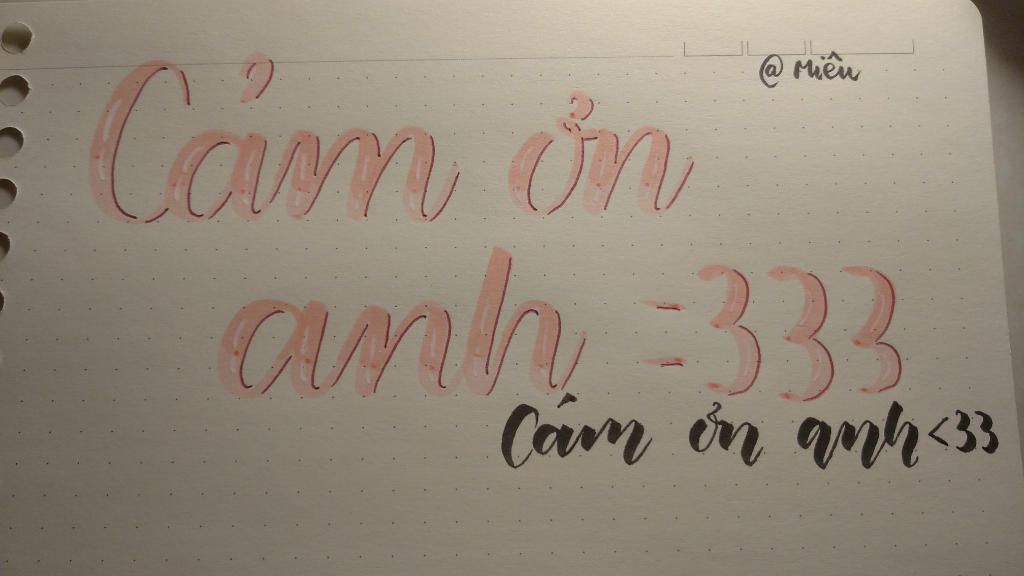 @ Miêu
Cảm ơn
anh =333
Cám ơn anh<33